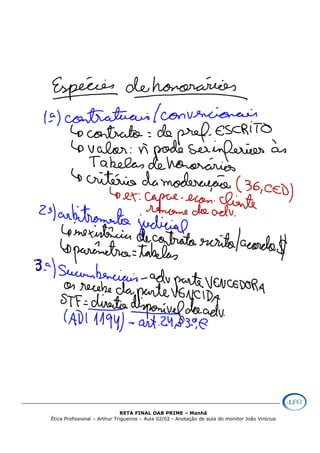 Espécies de honorários
(1ª) contratuais/convencionais
↳ contrato = de pref. ESCRITO
↳ valor: ñ pode ser inferior às
Tabelas de honorários
↳ critério da moderação (36, CED)
↳ ex: capac. econ. cliente
. renome do adv.
2ª) arbitramento judicial
↳ inexistência de contrato escrito/acordo $
↳ parâmetro = tabelas
3ª) Sucumbenciais - adv parte VENCEDORA
os recebe da parte VENCIDA
STF = direito disponível do adv.
(ADI 1194) - art. 24, §3º, E
LFG
RETA FINAL OAB PRIME – Manhã
Ética Profissional – Arthur Trigueiros – Aula 02/02 - Anotação de aula do monitor João Vinícius